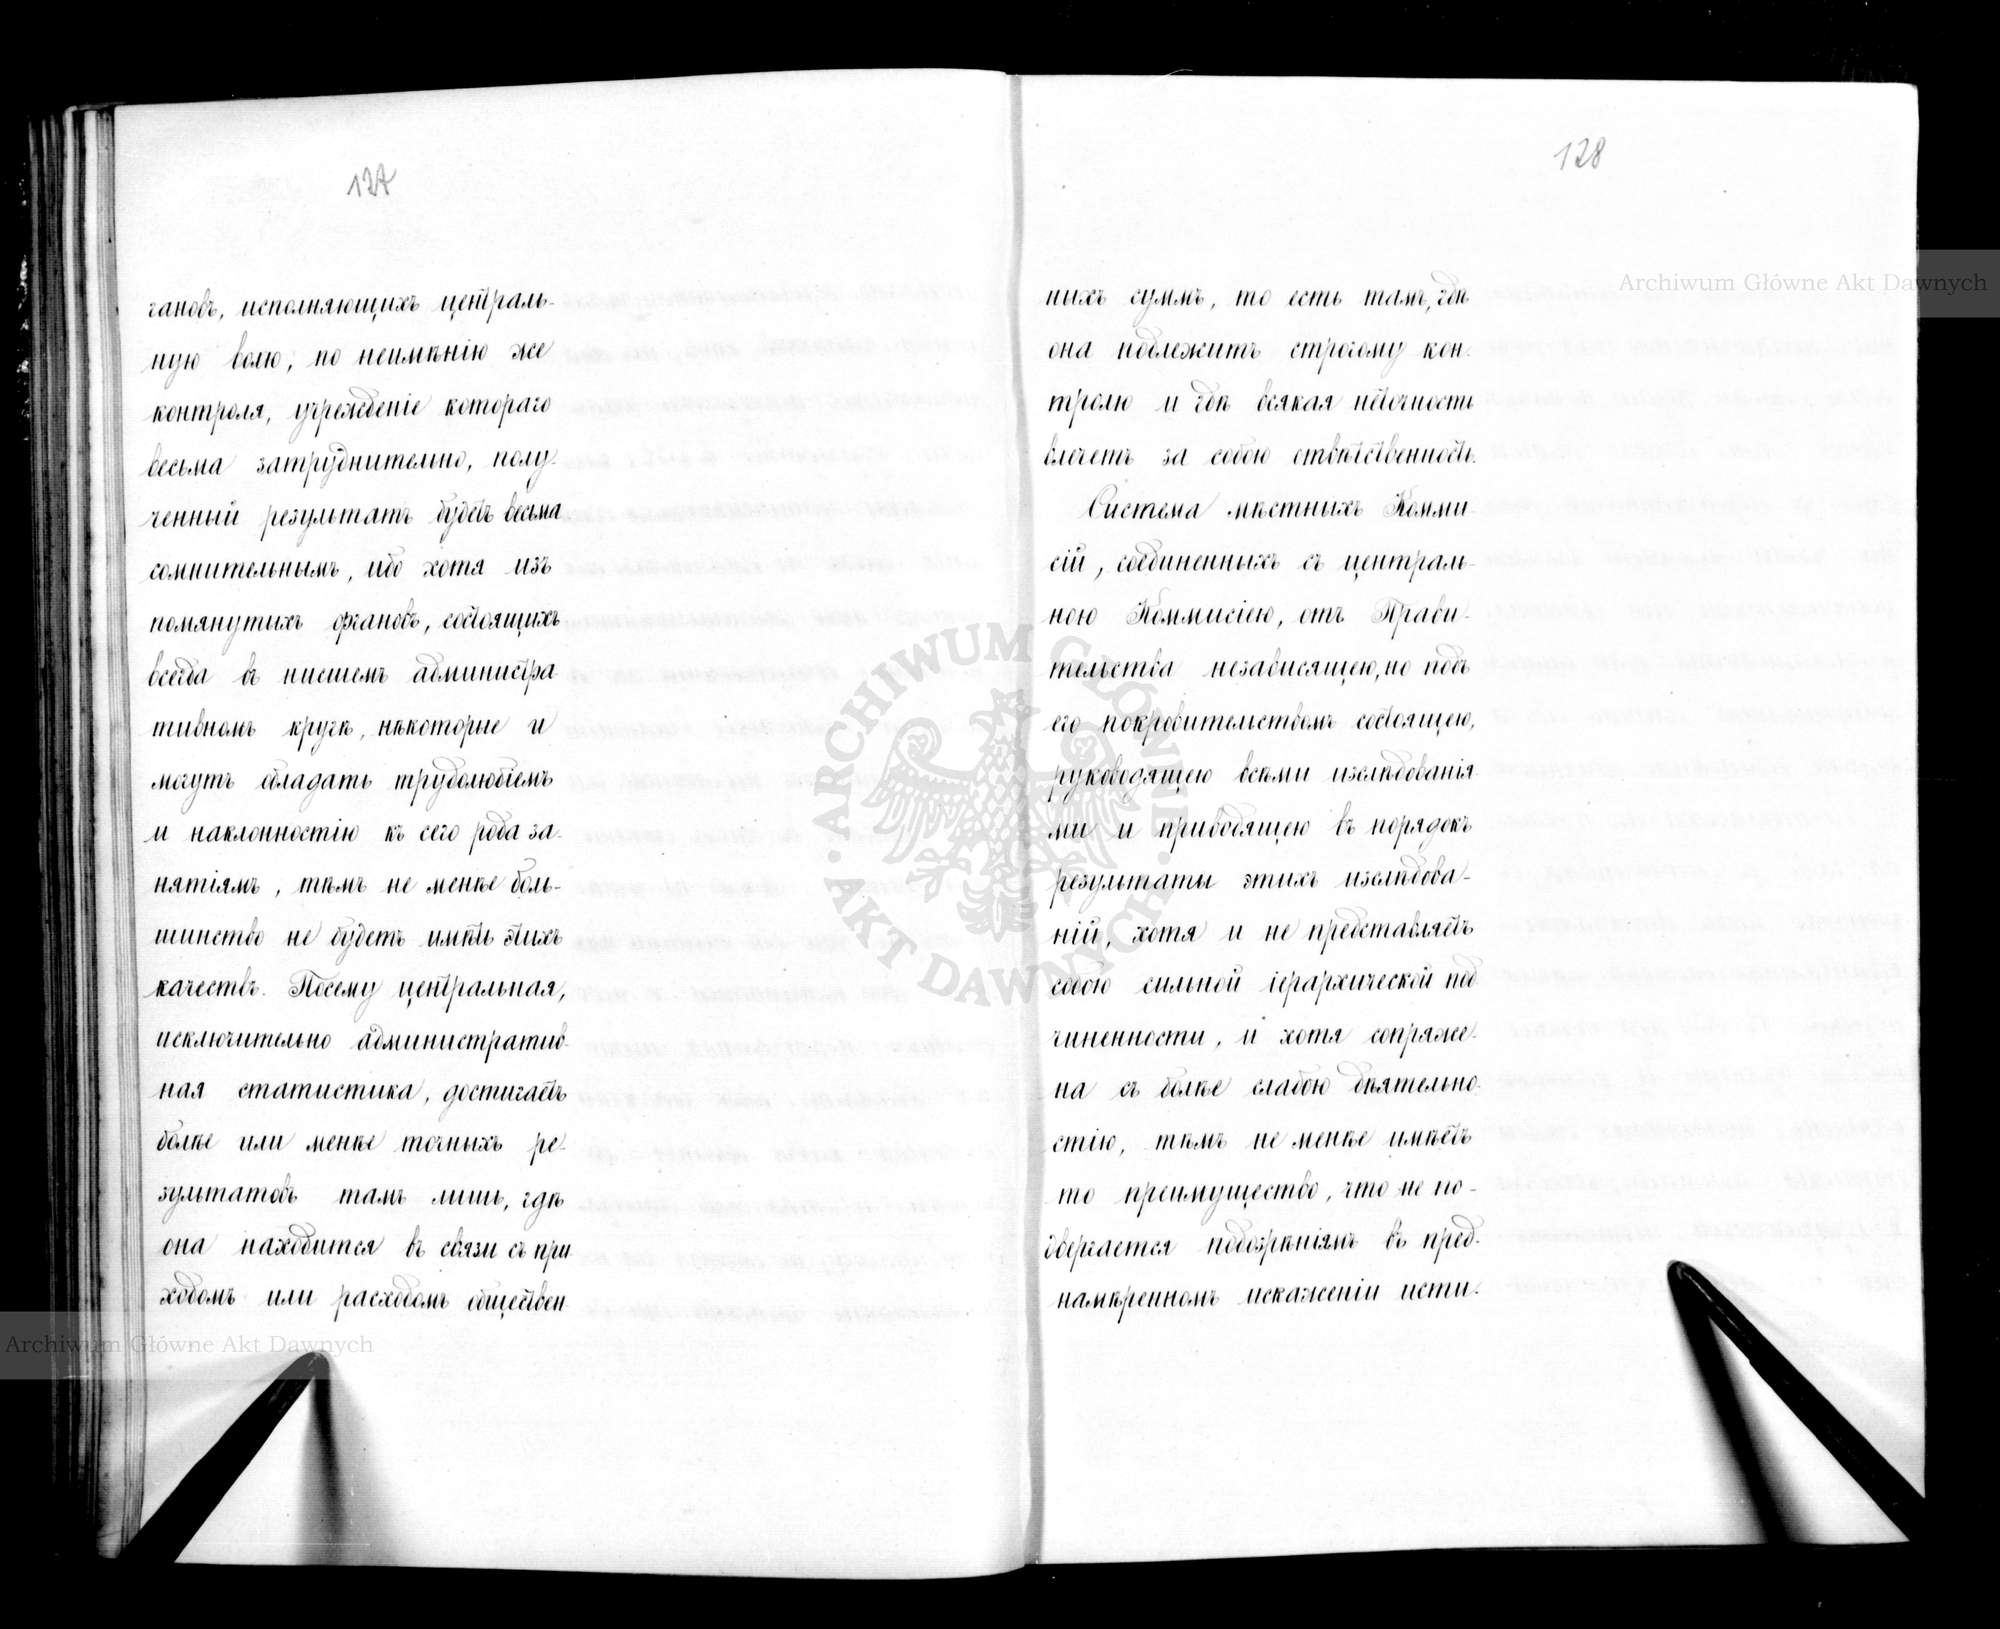 127
гановъ, исполняющихъ централь-
ную волю; по неимѣнію же
контроля, учрежденіе котораго
весьма затруднительно, полу-
ченный результатъ будетъ весьма
сомнительнымъ, ибо хотя изъ
помянутыхъ органовъ, состоящихъ
всегда въ нисшемъ администра
тивномъ кругѣ, нѣкоторые и
могутъ обладать трудолюбіемъ
и наклонностію къ сего рода за-
нятіямъ, тѣмъ не менѣе боль-
шинство не будетъ имѣть этихъ
качествъ. Посему центральная,
исключительно административ-
ная статистика, достигаетъ
болѣе или менѣе точныхъ ре-
зультатовъ тамъ лишь, гдѣ
она находится въ связи съ при
ходомъ или расходомъ обществен
128
ныхъ суммъ, то есть тамъ, гдѣ
она подлежитъ строгому кон-
тролю и гдѣ всякая неточность
влечетъ за собою отвѣтственность.
Система мѣстныхъ Комми-
сій, соединенныхъ съ централь-
ною Коммисіею, отъ Прави-
тельства независящею, но подъ
его покровительствомъ состоящею,
руководящею всѣми изслѣдованія
ми и приводящею въ порядокъ
результаты этихъ изслѣдова-
ній, хотя и не представляетъ
собою сильной іерархической под
чиненности, и хотя сопряже-
на съ болѣе слабою дѣятельно-
стію, тѣмъ не менѣе имѣетъ
то преимущество, что не по-
двергается подозрѣніямъ въ пред-
намѣренномъ искаженіи исти-
Archiwum Główne Akt Dawnych
Archiwum Główne Akt Dawnych
ARCHIWUM GŁÓWNE · AKT DAWNYCH ·